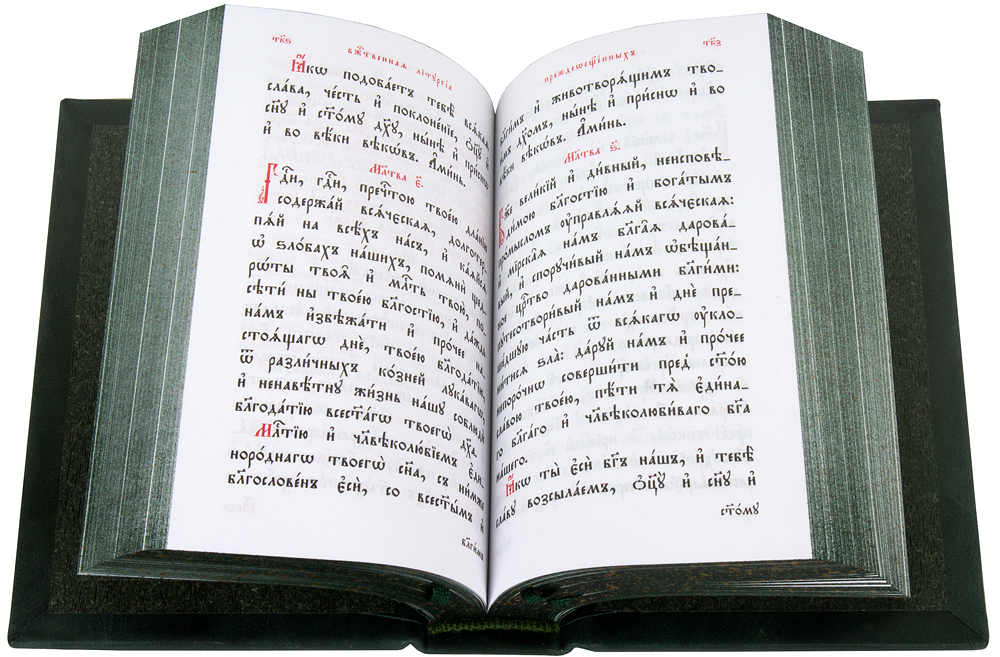 тк҃ѕ
бжⷭ҇твенная літꙋргі́а
Ꙗ҆́кѡ подоба́етъ тебѣ̀ всѧ́каѧ
сла́ва, че́сть и҆ поклоне́нїе, ѻ҆ц҃ꙋ̀ и҆
сн҃ꙋ и҆ ст҃о́мꙋ дх҃ꙋ, ны́нѣ и҆ при́снѡ
и҆ во вѣ́ки вѣкѡ́въ. А҆ми́нь.
Мл҃тва є҃.
Гдⷭ҇и, гдⷭ҇и, пречⷭ҇тою твое́ю дла́нїю
содержа́й всѧ́чєскаѧ, долготер-
пѧ́й на всѣ́хъ на́съ, и҆ ка́ѧйсѧ
ѡ҆ ѕло́бахъ на́шихъ, помѧнѝ щед-
рѡ́ты твоѧ҄ и҆ млⷭ҇ть твою̀, по-
сѣтѝ ны̀ твое́ю бл҃гостїю, и҆ да́ждь
на́мъ и҆збѣжа́ти и҆ про́чее на-
стоѧ́щагѡ днѐ, твое́ю бл҃года́тїю
ѿ разли́чныхъ ко́зней лꙋка́вагѡ
и҆ нена́вѣтнꙋ жи́знь на́шꙋ соблюдѝ
бл҃года́тїю всест҃а́гѡ твоегѡ̀ дх҃а.
Млⷭ҇тїю и҆ чл҃вѣколю́бїемъ є҆ди-
норо́днагѡ твоегѡ̀ сн҃а, съ ни́мже
бл҃гослове́нъ є҆сѝ, со всест҃ы́мъ и҆
бл҃ги́мъ
тк҃з
преждеѡсщ҃е́нныхъ
бл҃ги́мъ и҆ животворѧ́щимъ тво-
и́мъ дх҃омъ, ны́нѣ и҆ при́снѡ и҆ во
вѣ́ки вѣкѡ́въ. А҆ми́нь.
Мл҃тва ѕ҃.
Бж҃е вели́кїй и҆ ди́вный, неисповѣ-
ди́мою бл҃гостїю и҆ бога́тымъ
про́мысломъ ᲂу҆правлѧ́ѧй всѧ́чєскаѧ:
и҆ мїрска̑ѧ на́мъ бл҃га̑ѧ дарова-
вый, и҆ спорꙋчи́вый на́мъ ѡ҆бѣща́н-
ное црⷭ҇тво дарова́нными бл҃ги́ми:
пꙋтесотвори́вый на́мъ и҆ днѐ пре-
ше́дшꙋю ча́сть ѿ всѧ́кагѡ ᲂу҆кло-
ни́тисѧ ѕла̀: да́рꙋй на́мъ и҆ про́чее
непоро́чнѡ соверши́ти пред̾ ст҃о́ю
сла́вою твое́ю, пѣ́ти тѧ̀ є҆ди́на-
го бл҃га́го и҆ чл҃вѣколюби́ваго бг҃а
на́шего.
Ꙗ҆́кѡ ты̀ є҆сѝ бг҃ъ на́шъ, и҆ тебѣ̀
сла́вꙋ возсыла́емъ, ѻ҆ц҃ꙋ̀ и҆ сн҃ꙋ и҆
ст҃о́мꙋ